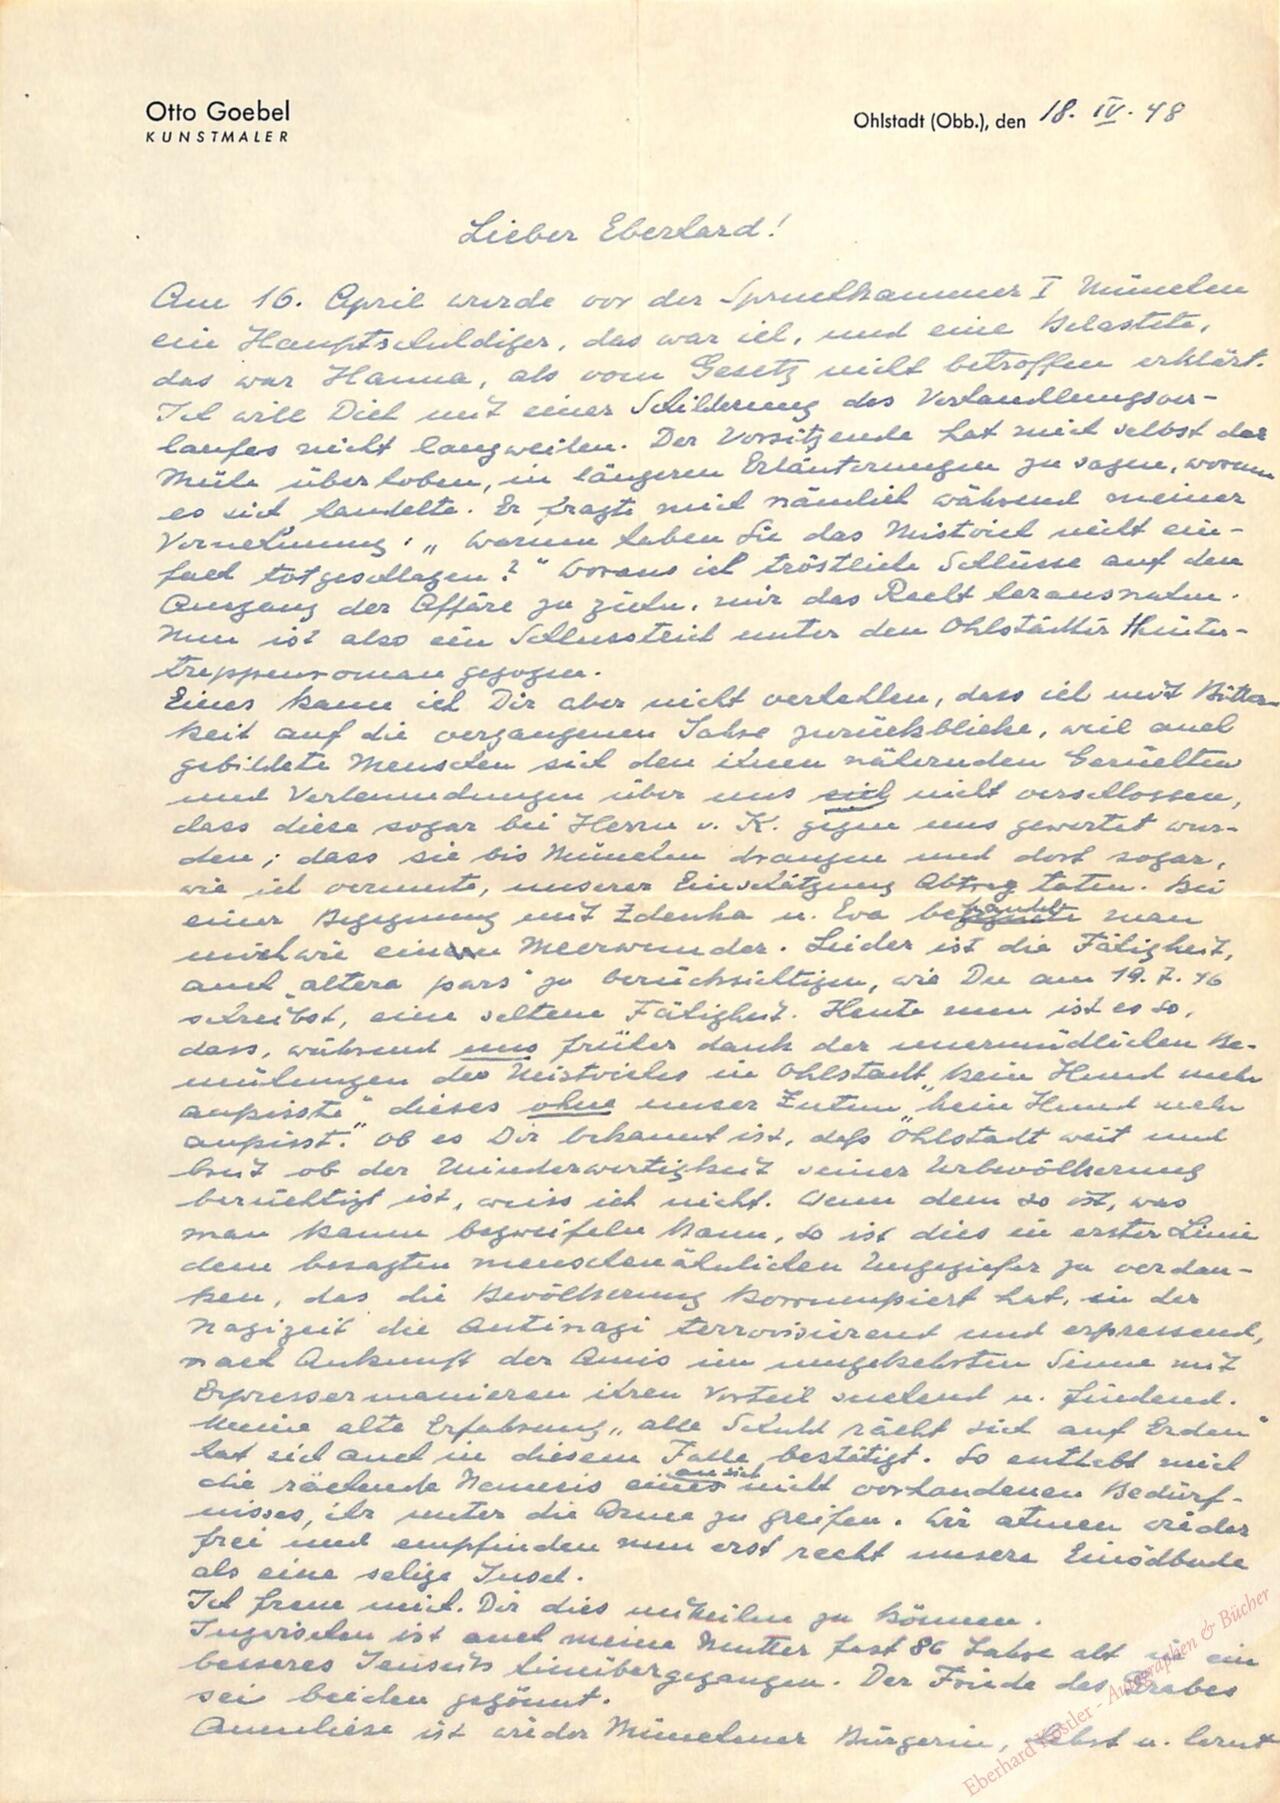 Otto Goebel
KUNSTMALER
Ohlstadt (Obb.), den 18. IV. 48
Lieber Eberhard!
Am 16. April wurde vor der Spruchkammer I München
ein Hauptschuldiger, das war ich, und eine Belastete,
das war Hanna, als vom Gesetz nicht betroffen erklärt.
Ich will Dich mit einer Schilderung des Verhandlungsver-
laufes nicht langweilen. Der Vorsitzende hat mich selbst der
Mühe überhoben, in längeren Erläuterungen zu sagen, worum
es sich handelte. Er fragte mich nämlich während meiner
Vernehmung: „Warum haben Sie das Mistvieh nicht ein-
fach totgeschlagen?" Woraus ich tröstliche Schlüsse auf den
Ausgang der Affäre zu ziehen, mir das Recht herausnahm.
Nun ist also ein Schlusstrich unter den Ohlstädter Hinter-
treppenroman gezogen.
Eines kann ich Dir aber nicht verhehlen, dass ich mit Bitter-
keit auf die vergangenen Jahre zurückblicke, weil auch
gebildete Menschen sich den ihnen nähernden Gerüchten
und Verleumdungen über uns sich nicht verschlossen,
dass diese sogar bei Herrn v. K. gegen uns gewertet wur-
den; dass sie bis München drangen und dort sogar,
wie ich vermute, unserer Einschätzung Abtrag taten. Bei
einer Begegnung mit Zdenka u. Eva begaffte man
mich wie einem Meerwunder. Leider ist die Fähigkeit,
auch „altera pars" zu berücksichtigen, wie Du am 19. 7. 46
schreibst, eine seltene Fähigkeit. Heute nun ist es so,
dass, während uns früher dank der unermüdlichen Be-
mühungen des Mistviehes in Ohlstadt „kein Hund mehr
anpisste" dieses ohne unser Zutun „kein Hund mehr
anpisst." Ob es Dir bekannt ist, daß Ohlstadt weit und
breit ob der Minderwertigkeit seiner Urbevölkerung
berüchtigt ist, weiss ich nicht. Wenn dem so ist, was
man kaum bezweifeln kann, so ist dies in erster Linie
dem besagten menschenähnlichen Ungeziefer zu verdan-
ken, das die Bevölkerung korrumpiert hat, in der
Nazizeit die Antinazi terrorisierend und erpressend,
nach Ankunft der Amis im umgekehrten Sinne mit
Erpressermanieren ihren Vorteil suchend u. findend.
Meine alte Erfahrung „alle Schuld rächt sich auf Erden"
hat sich auch in diesem Falle bestätigt. So enthebt mich
die rächende Nemesis eines an sich nicht vorhandenen Bedürf-
nisses, ihr unter die Arme zu greifen. Wir atmen wieder
frei und empfinden nun erst recht unsere Einödbude
als eine selige Insel.
Ich freue mich. Dir dies mitteilen zu können.
Inzwischen ist auch meine Mutter fast 86 Jahre alt in ein
besseres Jenseits hinübergegangen. Der Friede des Grabes
sei beiden gegönnt.
Anneliese ist wieder Münchner Bürgerin, lebt u. lernt
Eberhard Köstler - Autographen & Bücher